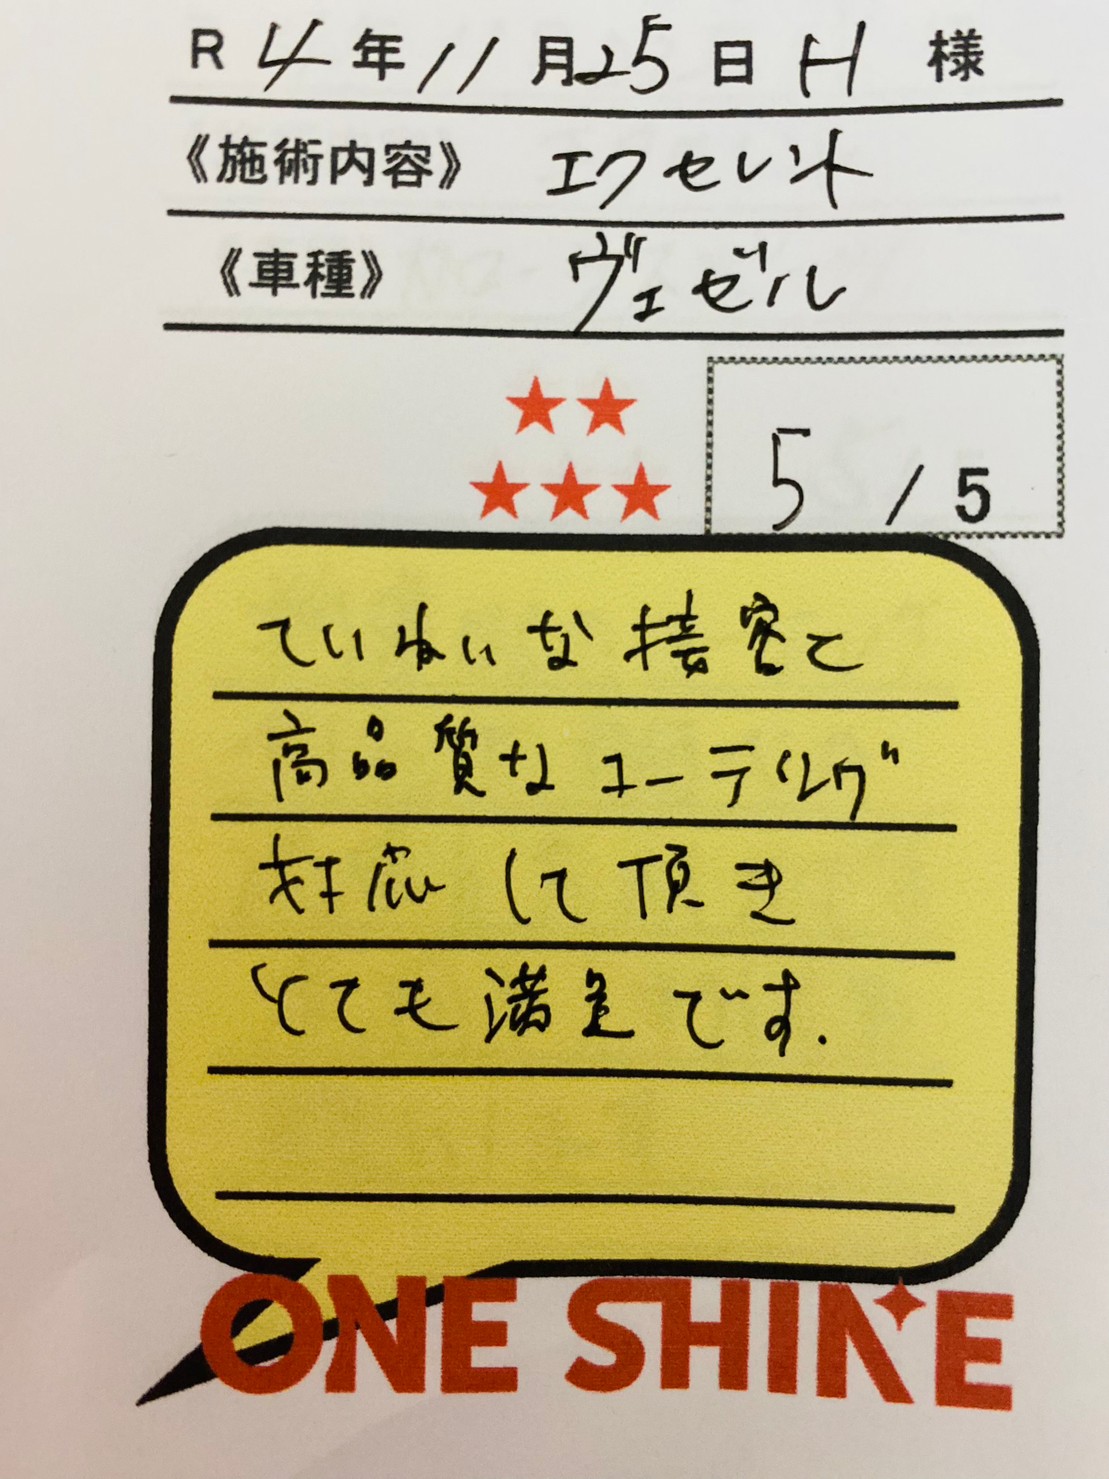 R 4年 11月25日 H 様
《施術内容》 エクセレント
《車種》 ヴェゼル
★★
★★★ 5 / 5
ていねいな接客と
高品質なコーティング
対応して頂き
とても満足です.
ONE SHINE